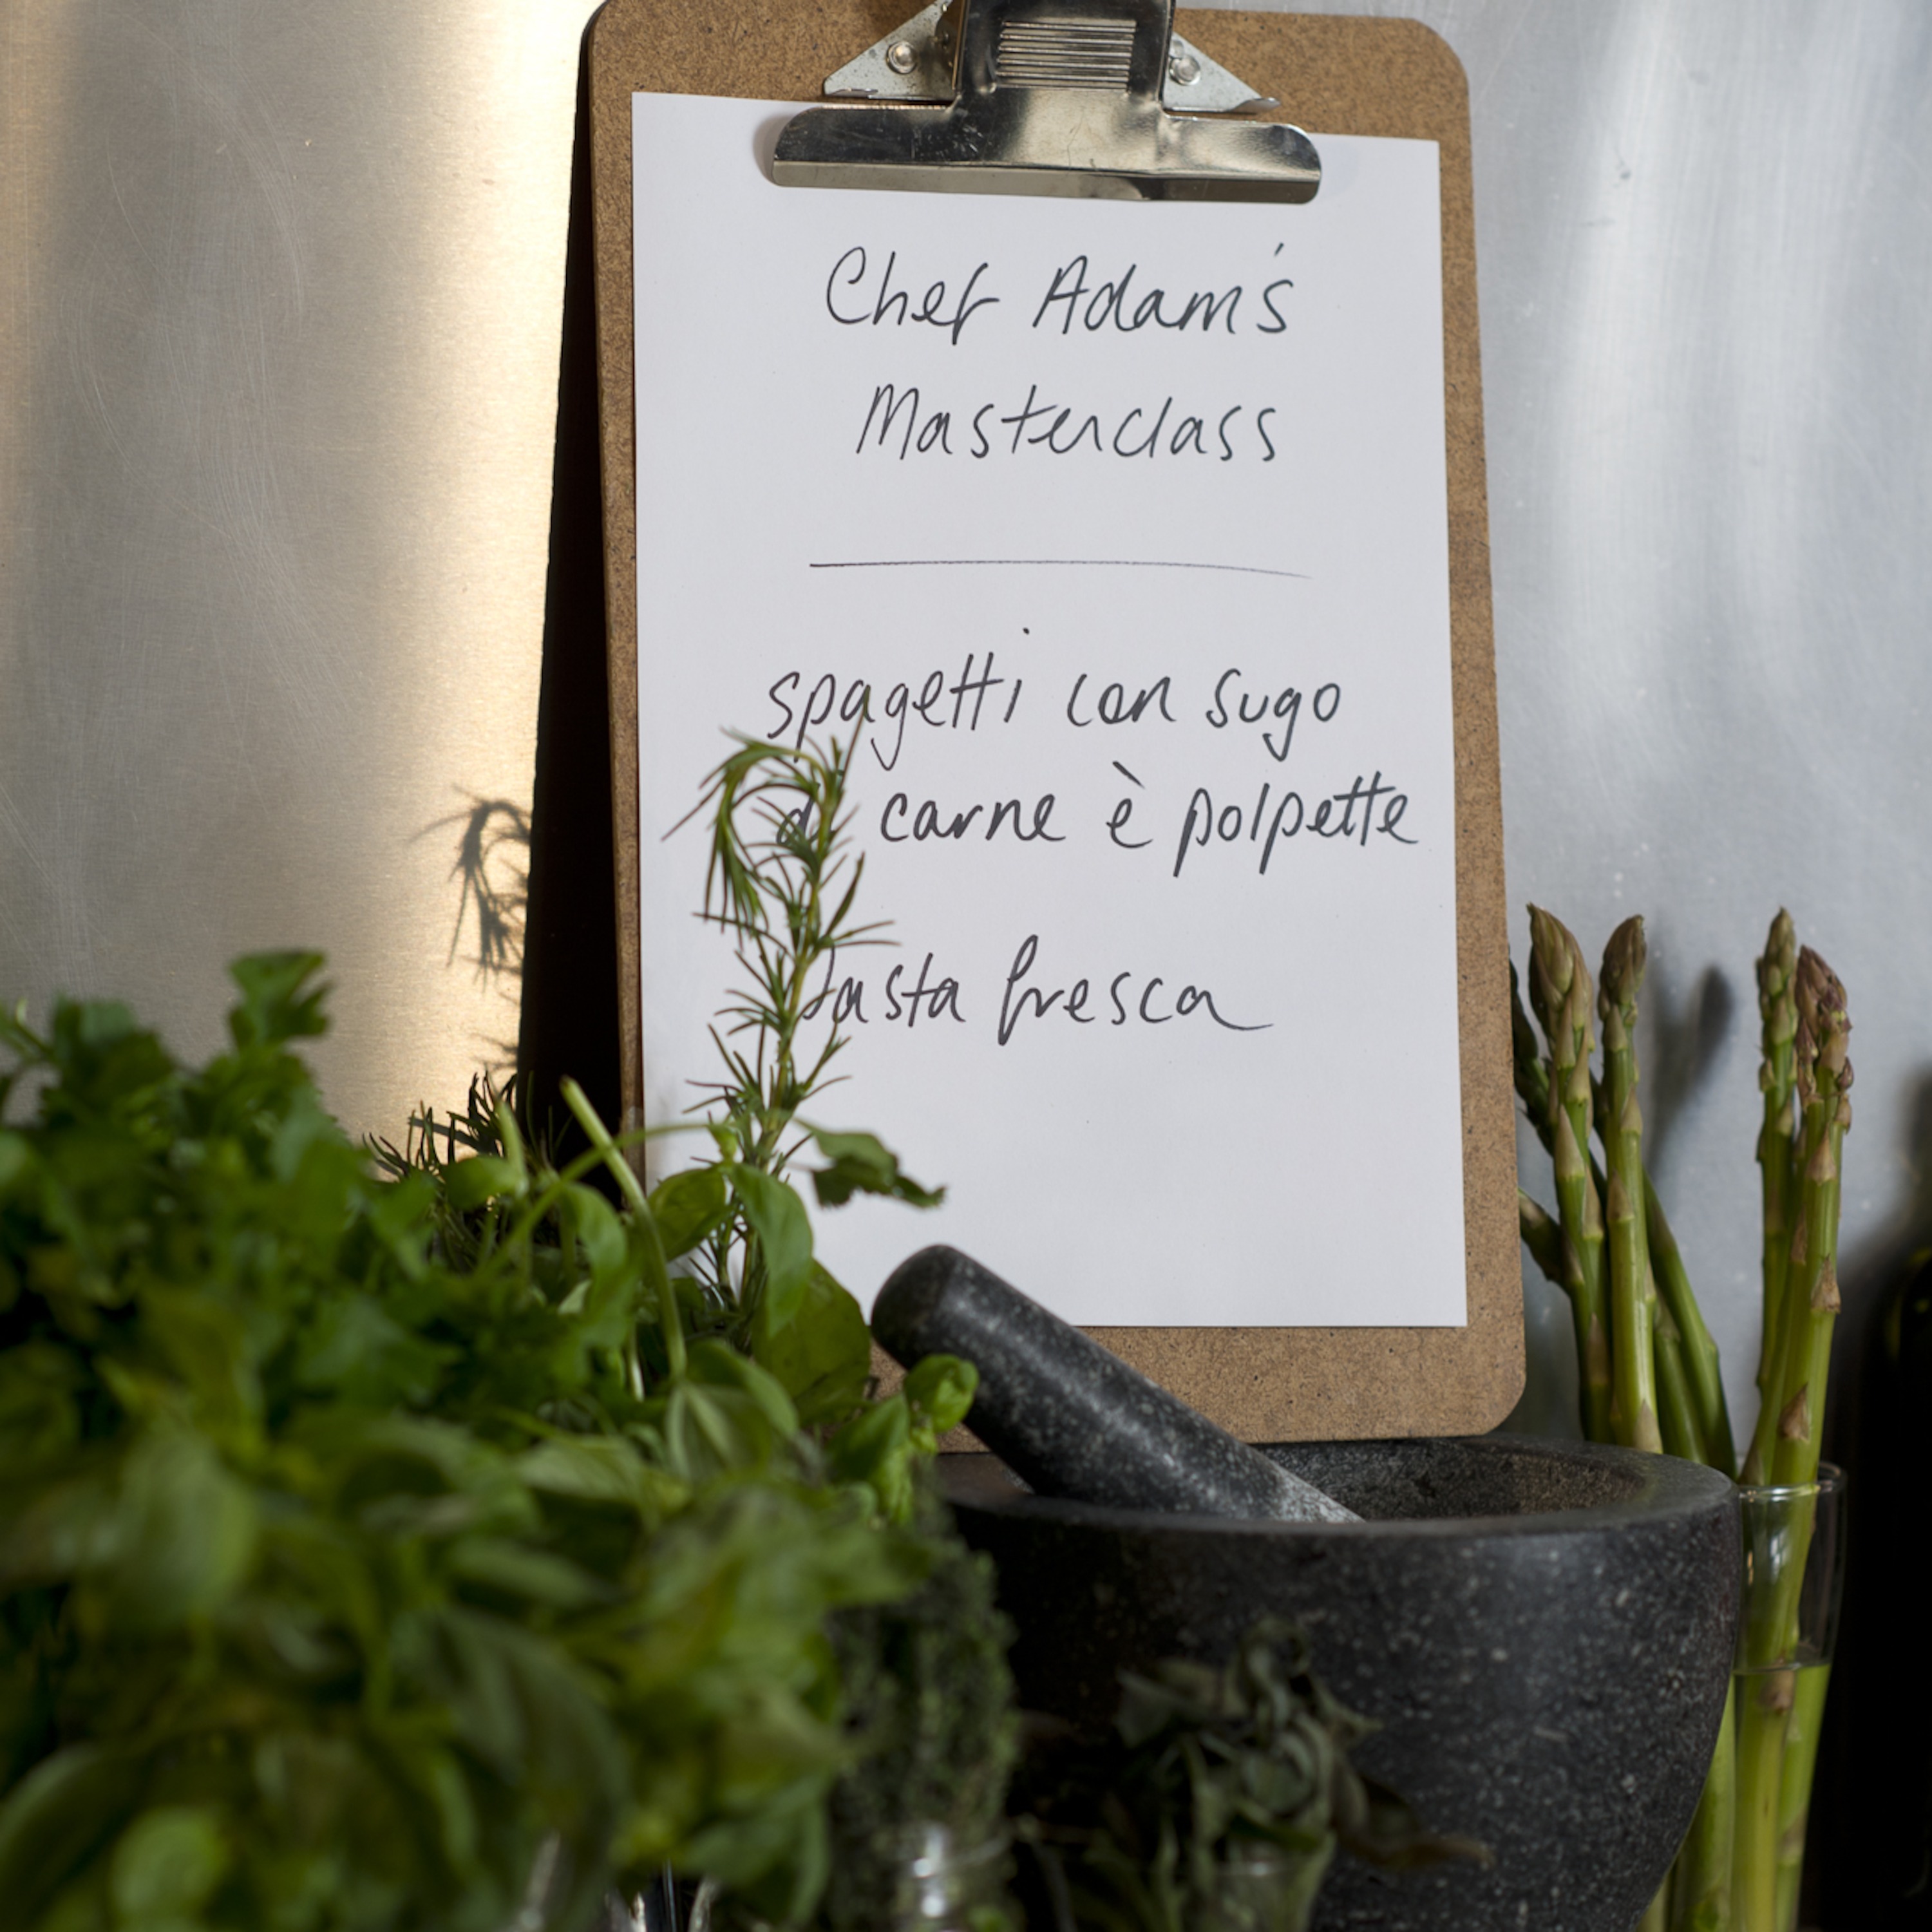 Chef Adam's
Masterclass
spagetti con sugo
di carne è polpette
Pasta fresca